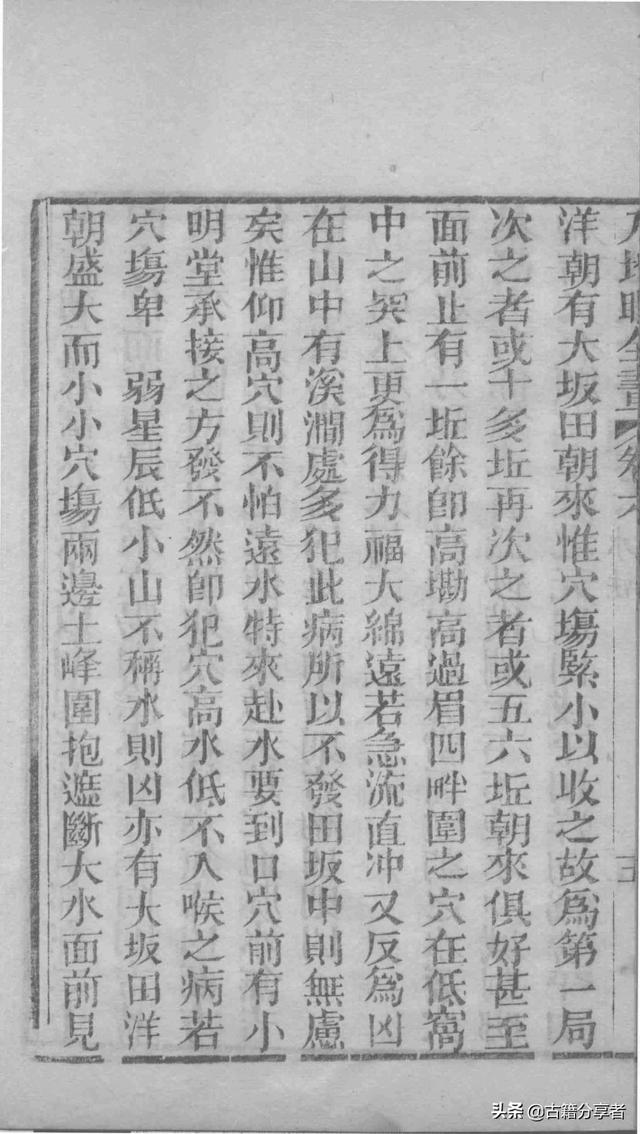 洋朝有大坂田朝來惟穴塲緊小以收之故爲第一局
次之者或十多坵再次之者或五六坵朝來俱好甚至
面前止有一坵餘卽高墈高過眉四畔圍之穴在低窩
中之突上更爲得力福大綿遠若急流直冲又反爲凶
在山中有溪澗處多犯此病所以不發田坂中則無慮
矣惟仰高穴則不怕遠水特來赴水要到口穴前有小
明堂承接之方發不然卽犯穴高水低不入喉之病若
穴塲卑 弱星辰低小山不稱水則凶亦有大坂田洋
朝盛大而小小穴塲兩邊土峰圍抱遮斷大水面前見
頭条 @古籍分享者